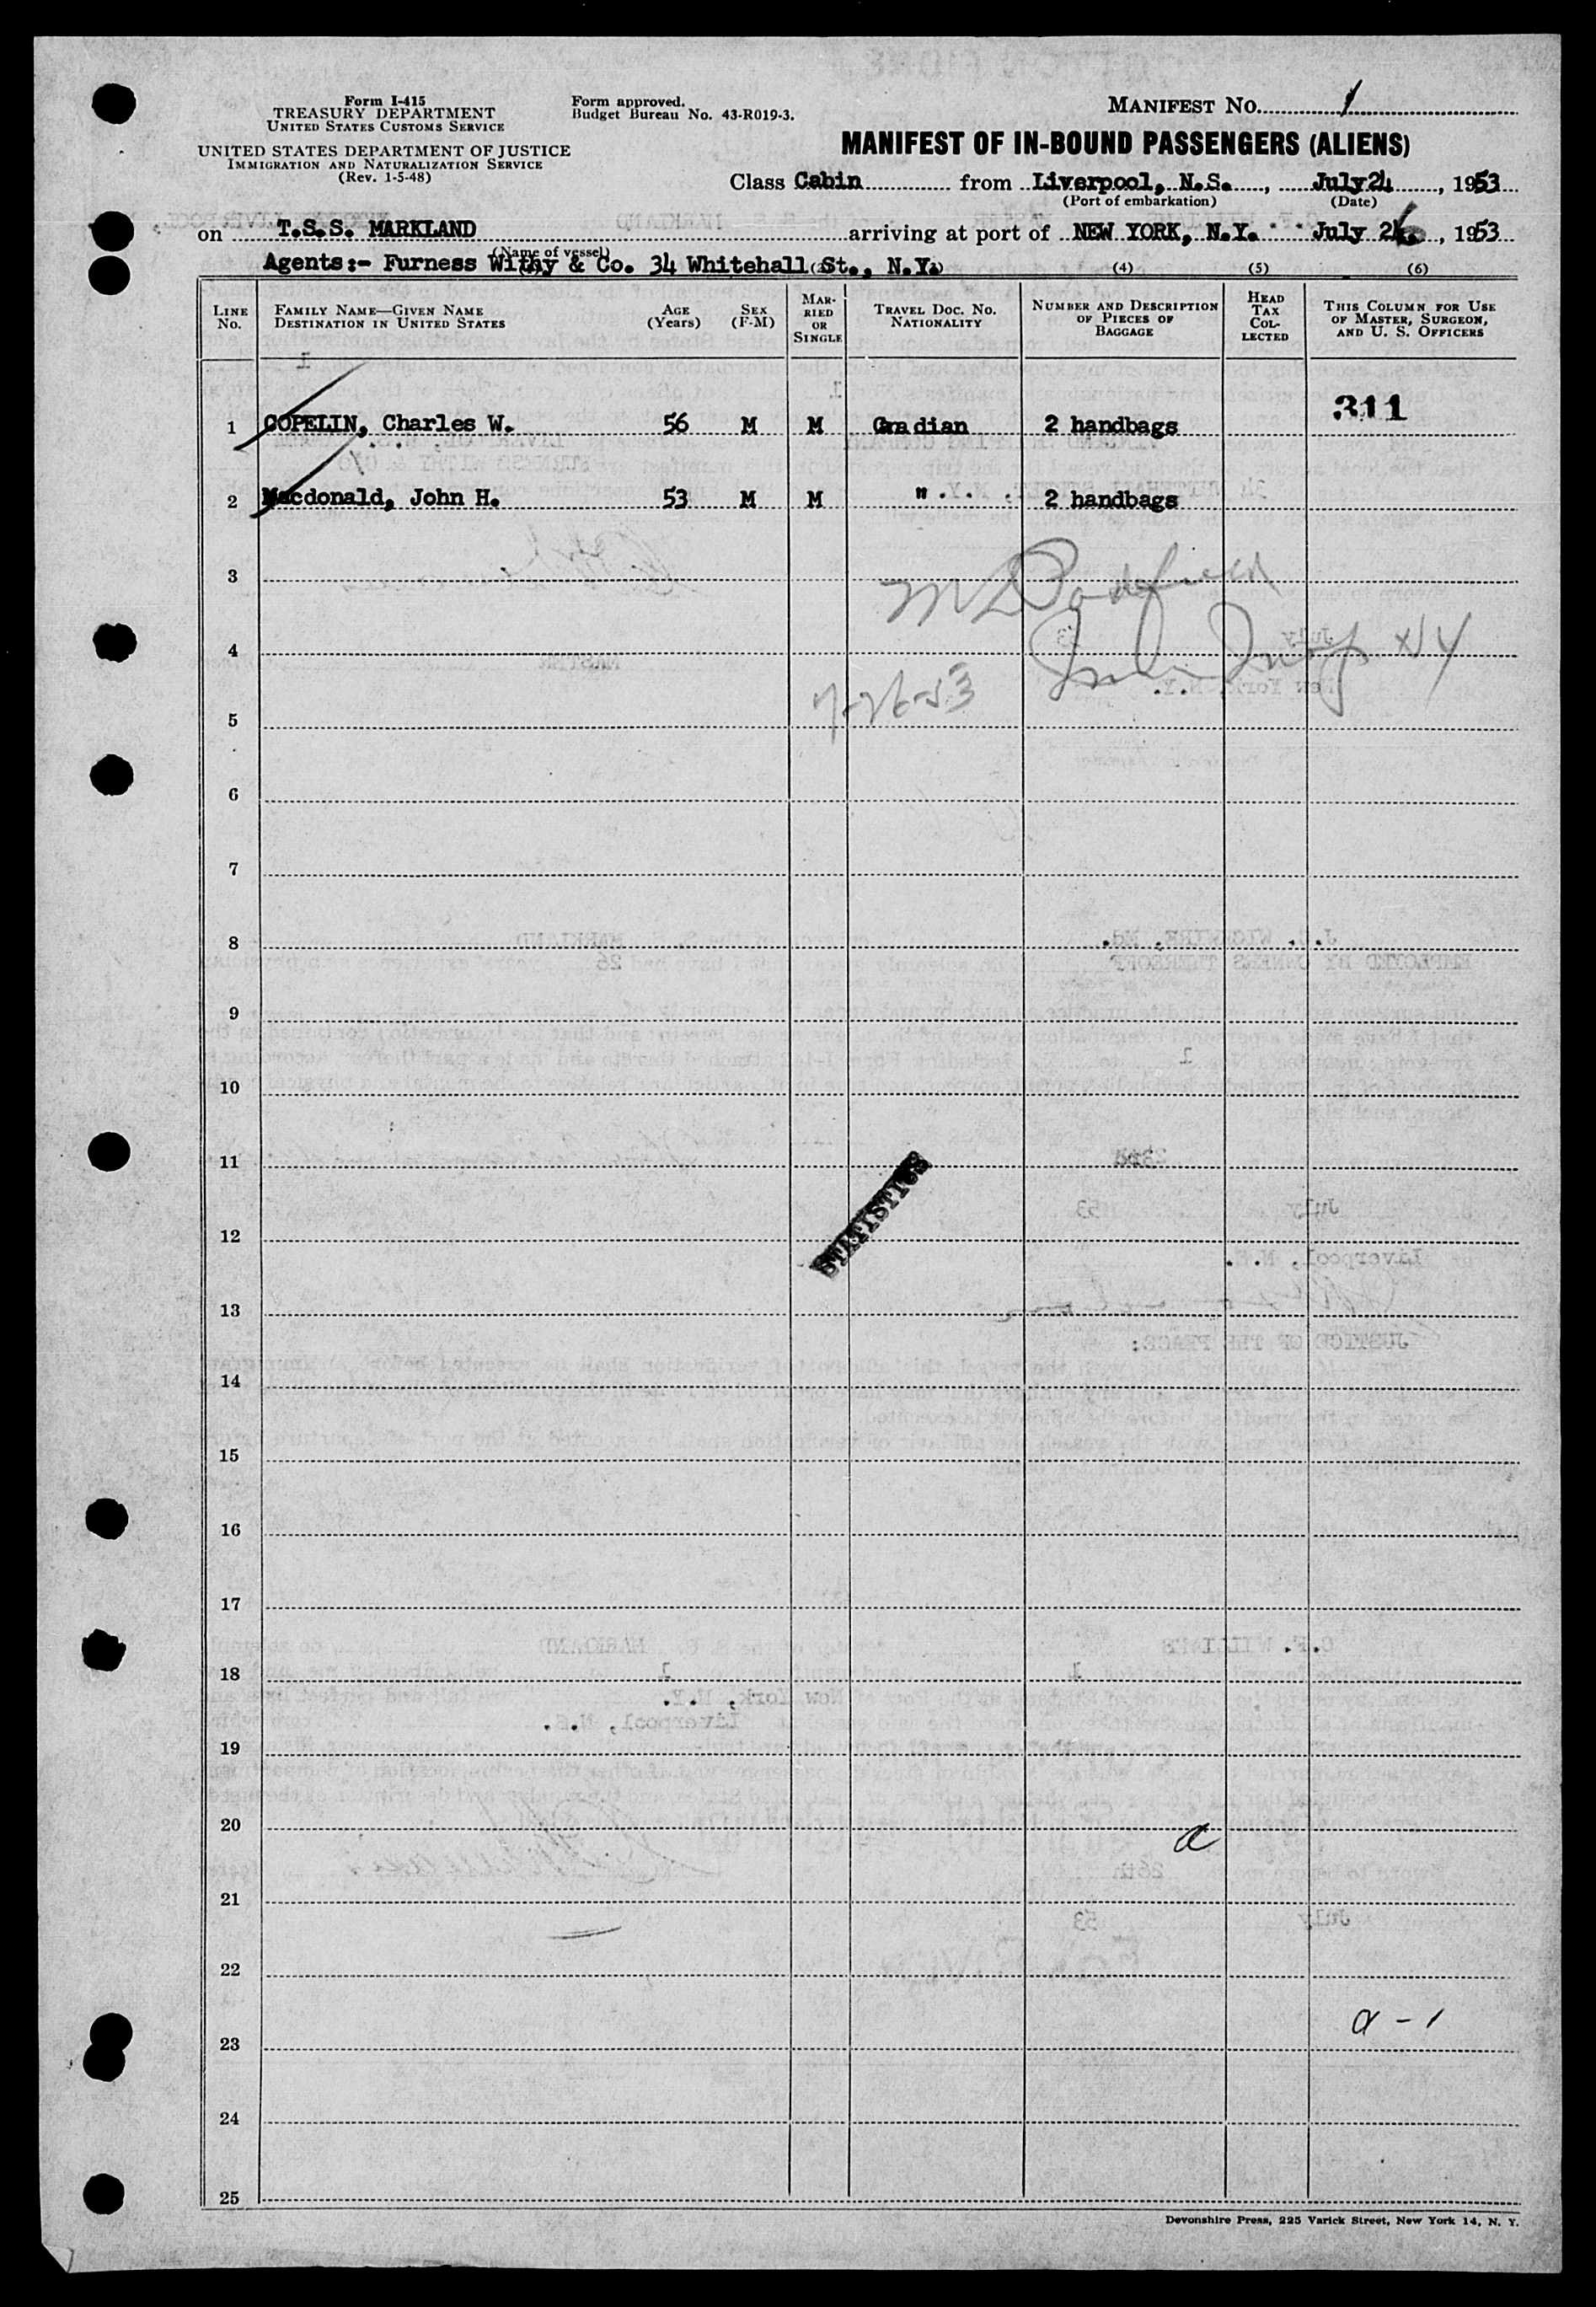 Form I-415
TREASURY DEPARTMENT
UNITED STATES CUSTOMS SERVICE
UNITED STATES DEPARTMENT OF JUSTICE
IMMIGRATION AND NATURALIZATION SERVICE
(Rev. 1-5-48)
Form approved.
Budget Bureau No. 43-R019-3.
MANIFEST NO. 1
MANIFEST OF IN-BOUND PASSENGERS (ALIENS)
Class Cabin from Liverpool, N.S., July 24, 1953
(Port of embarkation) (Date)
on T.S.S. MARKLAND arriving at port of NEW YORK, N.Y. July 26, 1953
(Name of vessel)
Agents:- Furness Withy & Co. 34 Whitehall St., N.Y.
(4) (5) (6)
LINE No. FAMILY NAME—GIVEN NAME DESTINATION IN UNITED STATES AGE (Years) SEX (F-M) MARRIED OR SINGLE TRAVEL DOC. NO. NATIONALITY NUMBER AND DESCRIPTION OF PIECES OF BAGGAGE HEAD TAX COLLECTED THIS COLUMN FOR USE OF MASTER, SURGEON, AND U. S. OFFICERS
311
1 COPELIN, Charles W. 56 M M Canadian 2 handbags
2 Macdonald, John H. 53 M M " 2 handbags
3
M Padfield
4
NY
7-26-53
5
6
7
8
9
10
11
STATISTICS
12
13
14
15
16
17
18
19
20
a
21
22
a - 1
23
24
25
Devonshire Press, 225 Varick Street, New York 14, N. Y.